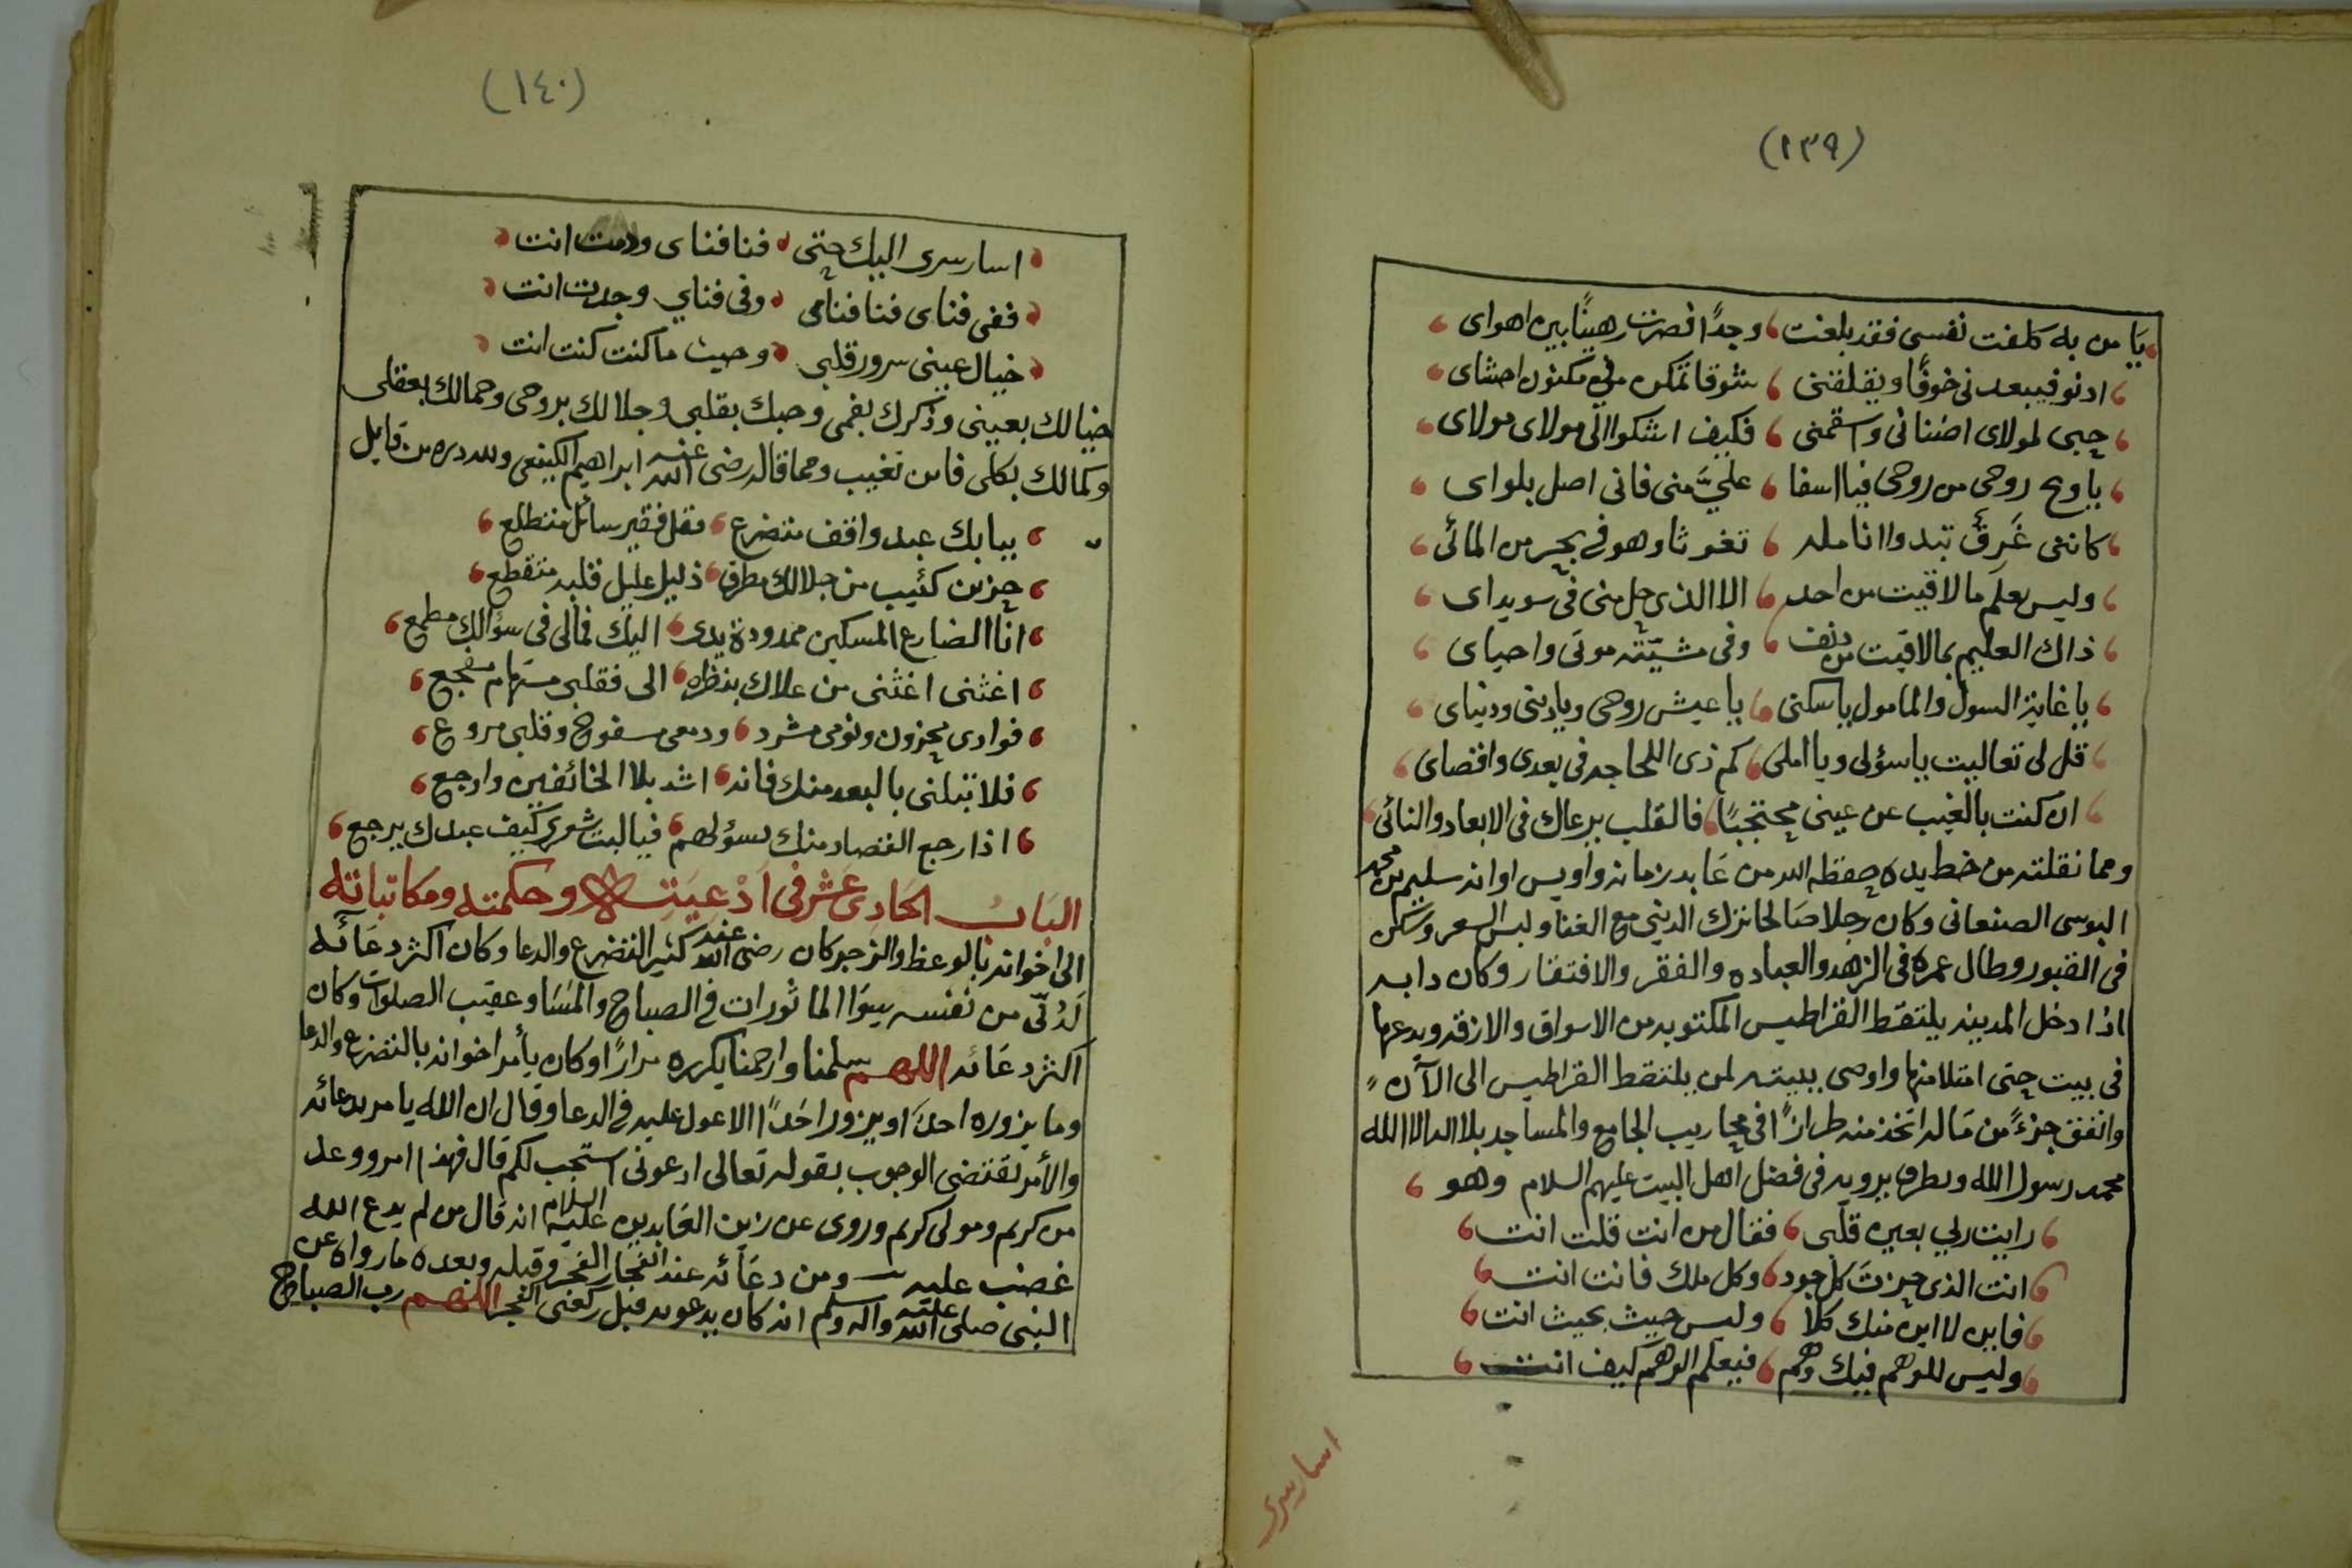 (١٣٩)
يا من به كلفت نفسي فقد بلغت وجدًا فصرت رهينًا بين اهواى
ادنو فيبعدنى خوفًا ويقلقنى شوقا تمكن في مكنون احشاى
حبى لمولاى اضنانى واسقمنى فكيف اشكوا الى مولاى مولاى
ياويح روحى من روحى فيا اسفا عليَّ منى فانى اصل بلواى
كاننى غَرِقٌ تبدوا انامله تغوثا وهو في بحر من المائى
وليس يعلم مالاقيت من احد الا الذى حل منى فى سويداى
ذاك العليم بمالاقيت من دنف وفى مشيّته موتى واحياى
ياغاية السول والمامول ياسكنى ياعيش روحى ويادينى ودنياى
قل لى تعاليت ياسؤلى ويا املى كم ذى اللجاجه فى بعدى واقصاى
ان كنت بالغيب عن عينى محتجبًا فالقلب يرعاك فى الابعاد والنائى
ومما نقلته من خط يده حفظه الله من عابد زمانه واويس اوانه سليم بن محمد
البوسى الصنعانى وكان رجلا صالحا ترك الدينى مع الغنا ولبس الشعر وسكن
فى القبور وطال عمره فى الزهد والعباده والفقر والافتقار وكان دابه
اذا دخل المدينه يلتقط القراطيس المكتوبه من الاسواق والازقه ويدعها
فى بيت حتى امتلا منها واوصى ببيته لمن يلتقط القراطيس الى الآن
وانفق جزءً من ماله اتخذ منه طرازًا فى محاريب الجامع والمساجد بلا اله الا الله
محمد رسول الله وبطرق يرويه فى فضل اهل البيت عليهم السلام وهو
رايت ربي بعين قلبى فقال من انت قلت انت
انت الذى حزت كل جود وكل ملك فانت انت
فاين لا اين منك كلا وليس حيث بحيث انت
وليس للوهم فيك وهم فيعلم الوهم كيف انت
اسار سرى
(١٤٠)
اسار سرى اليك حتى فنا فناى ودمت انت
ففى فناى فنا فنامى وفى فناي وجدت انت
خيال عينى سرور قلبى وحيث ماكنت كنت انت
خيالك بعينى وذكرك بفمى وحبك بقلبى وجلالك بروحى وجمالك بعقلى
وكمالك بكلى فاين تغيب ومما قاله رضى الله عنه ابراهيم الكينعى ولله دره من قايل
ببابك عبد واقف متضرع مقل فقير سائل متطلع
حزين كئيب من جلالك مطرق ذليل عليل قلبه متقطع
انا الضارع المسكين ممدودة يدى اليك فمالى فى سؤالك مطمع
اغثنى اغثنى من علاك بنظره الى فقلبى مستهام مفجع
فوادى محزون ونومى مشرد ودمعى مسفوح وقلبى مروع
فلا تبلنى بالبعد منك فانه اشد بلا الخائفين واوجع
اذا رجع القصاد منك بسؤلهم فياليت شعرى كيف عبدك يرجع
الباب الحادى عشر فى ادعيته وحكمته ومكاتباته
الى اخوانه بالوعظ والزجر كان رضى الله عنه كثير التضرع والدعا وكان اكثر دعائه
لدنّى من نفسه سوا الماثورات فى الصباح والمسا وعقيب الصلوات وكان
اكثر دعائه اللهم سلمنا وارحمنا يكرره مرارًا وكان يأمر اخوانه بالتضرع والدعا
وما يزوره احدًا او يزور احدًا الا عول عليه فى الدعا وقال ان الله يامر بدعائه
والأمر تقتضى الوجوب بقوله تعالى ادعونى استجب لكم قال فهذا امر ووعد
من كريم ومولى كريم وروى عن زين العابدين عليه السلام انه قال من لم يدع الله
غضب عليه ومن دعائه عند انفجار الفجر وقبله وبعده مارواه عن
النبى صلى الله عليه واله وسلم انه كان يدعو به قبل ركعتى الفجر اللهم رب الصباح